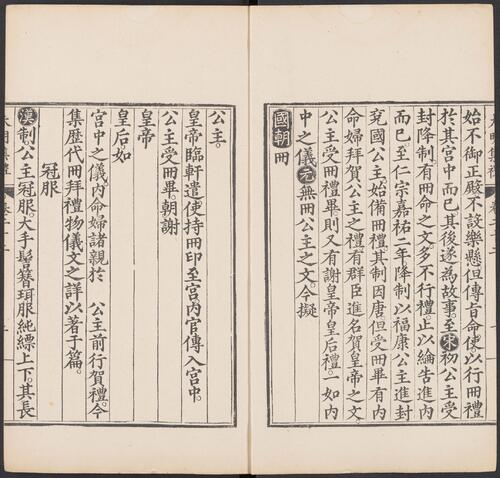 始不御正殿不設樂懸但傳旨命使以行冊禮
於其宮中而已其後遂為故事。至宋初公主受
封降制。有冊命之文多不行禮。止以綸告進內
而已。至仁宗嘉祐二年降制以福康公主進封
兗國公主始備冊禮。其制因唐。但受冊畢有內
命婦拜賀公主之禮。有群臣進名賀皇帝之文
公主受冊禮畢則又有謝皇帝皇后禮。一如內
中之儀。元無冊公主之文。今擬
國朝冊
公主。
皇帝臨軒遣使持冊印至宮。內官傳入宮中。
公主受冊畢。朝謝
皇帝
皇后如
宮中之儀。內命婦諸親於 公主前行賀禮。今
集歷代冊拜禮物儀文之詳以著于篇。
冠服
漢制。公主冠服。大手髻簪珥服純縹上下。其長